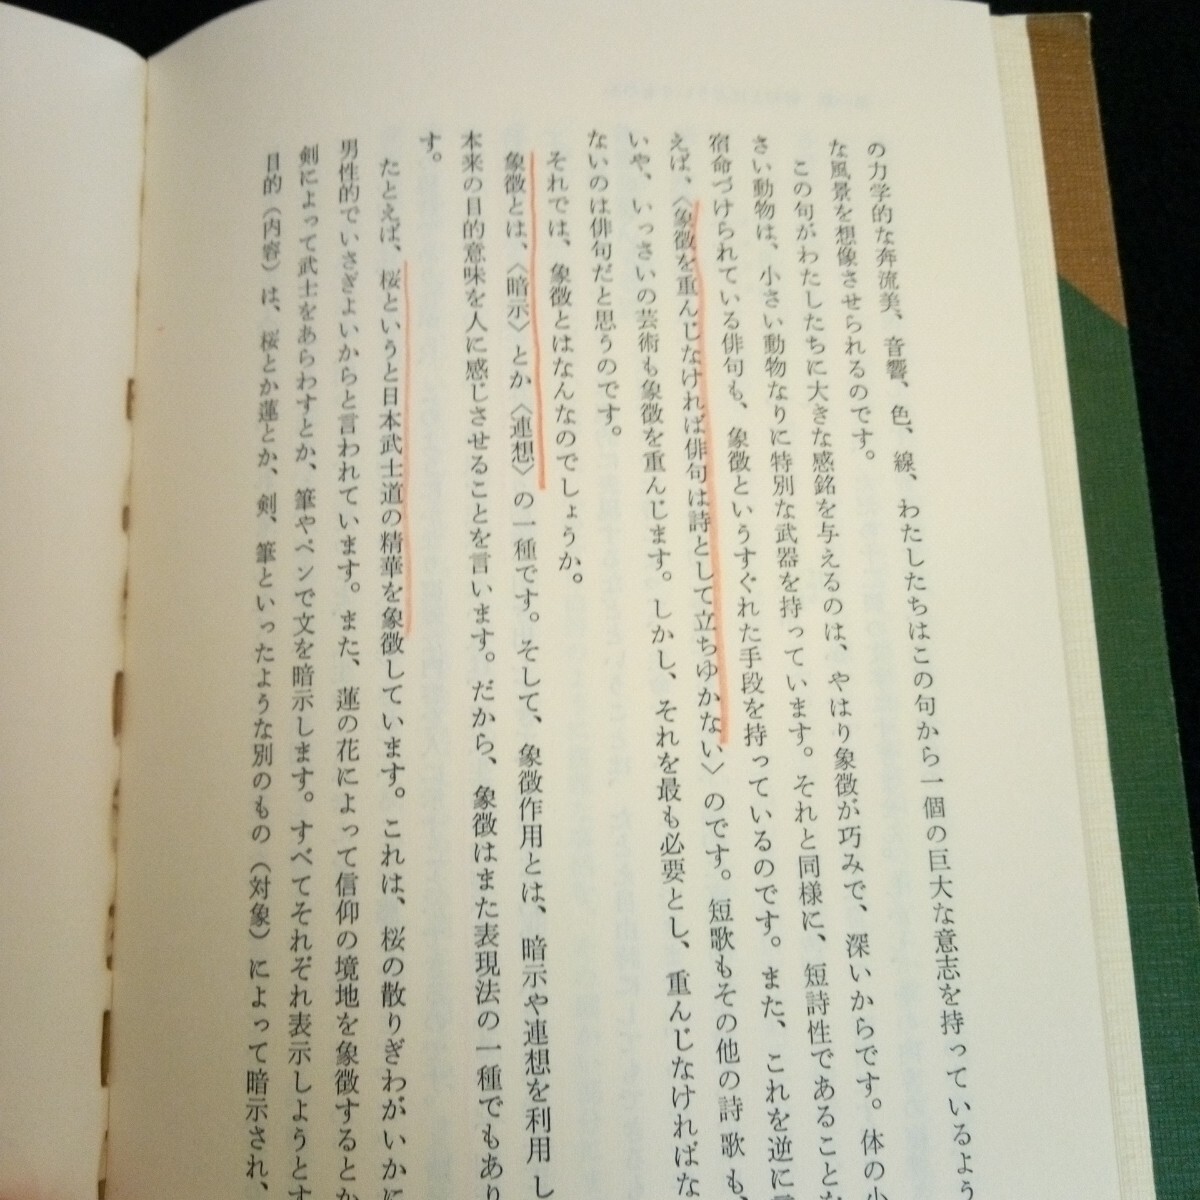 の力学的な奔流美、音響、色、線、わたしたちはこの句から一個の巨大な意志を持っているよう
な風景を想像させられるのです。
この句がわたしたちに大きな感銘を与えるのは、やはり象徴が巧みで、深いからです。体の小
さい動物は、小さい動物なりに特別な武器を持っています。それと同様に、短詩性であることな
宿命づけられている俳句も、象徴というすぐれた手段を持っているのです。また、これを逆に言
えば、〈象徴を重んじなければ俳句は詩として立ちゆかない〉のです。短歌もその他の詩歌も、
いや、いっさいの芸術も象徴を重んじます。しかし、それを最も必要とし、重んじなければな
ないのは俳句だと思うのです。
それでは、象徴とはなんなのでしょうか。
象徴とは、〈暗示〉とか〈連想〉の一種です。そして、象徴作用とは、暗示や連想を利用し
本来の目的意味を人に感じさせることを言います。だから、象徴はまた表現法の一種でもあり
す。
たとえば、桜というと日本武士道の精華を象徴しています。これは、桜の散りぎわがいかに
男性的でいさぎよいからと言われています。また、蓮の花によって信仰の境地を象徴するとか
剣によって武士をあらわすとか、筆やペンで文を暗示します。すべてそれぞれ表示しようとす
目的（内容）は、桜とか蓮とか、剣、筆といったような別のもの（対象）によって暗示され、